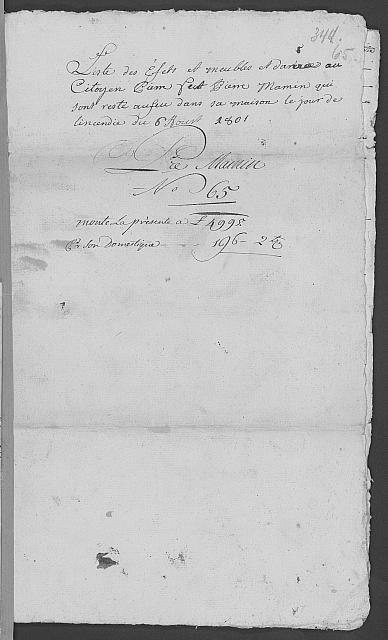 344.
65.
Liste des Efets et meubles et danrée au
Citoyen feu Mamin qui
sont resté aufeu dans sa maison le jour de
lincendie du 6 Aoust 1801
Mamin
No 65
monte la présente a £ 4998
Et son domestique 196 - 2